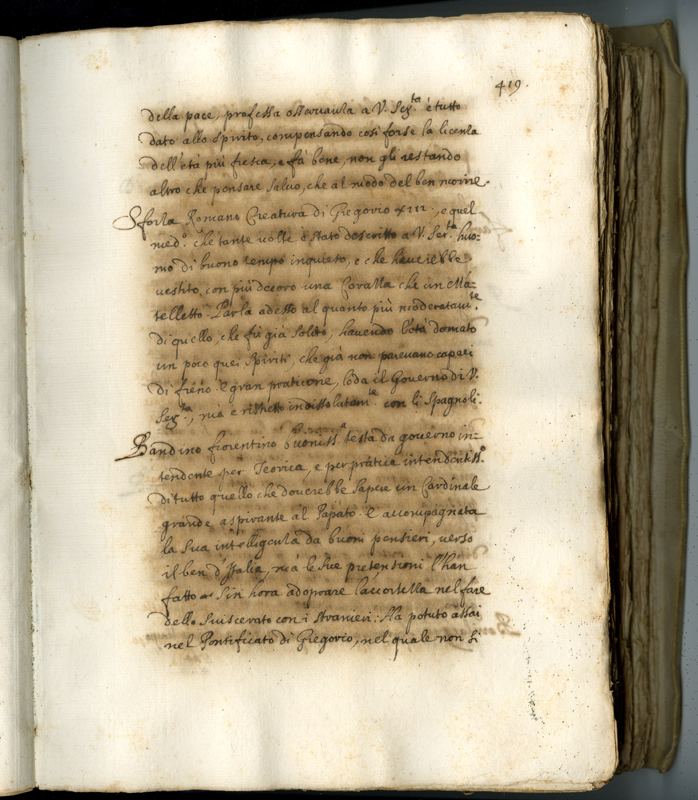 419.
della pace, professa osservanza a V. Ser.ta è tutto
dato allo spirito, compensando così forse la licenza
dell'età più fresca, e fà bene, non gli restando
altro che pensare salvo, che al modo del ben morire.
Sforza Romano Creatura di Gregorio XIII., e quel
med.o che tante volte è stato descritto a V. Ser.ta huo-
mo di buono tempo inquieto, e che haverebbe
vestito, con più decoro una Corazza che un Man-
telletto. Parla adesso al quanto più moderatam.te
di quello, che fù già solito, havendo l'età domato
un poco quei spiriti, che già non parevano capaci
di freno. è gran praticone, loda il Governo di V.
Ser.ta, mà è ristretto indissolutam.te con li Spagnoli.
Bandino fiorentino buoniss.a testa da governo in-
tendente per Teorica, e per pratica intendentiss.o
di tutto quello che doverebbe sapere un Cardinale
grande aspirante al Papato. è accompagnata
la sua intelligenza da buoni pensieri, verso
il ben d'Italia, mà le sue pretensioni l'han
fatto sin hora adoprare l'accortezza nel fare
dello sviscerato con i stranieri: Hà potuto assai
nel Pontificato di Gregorio, nel quale non si